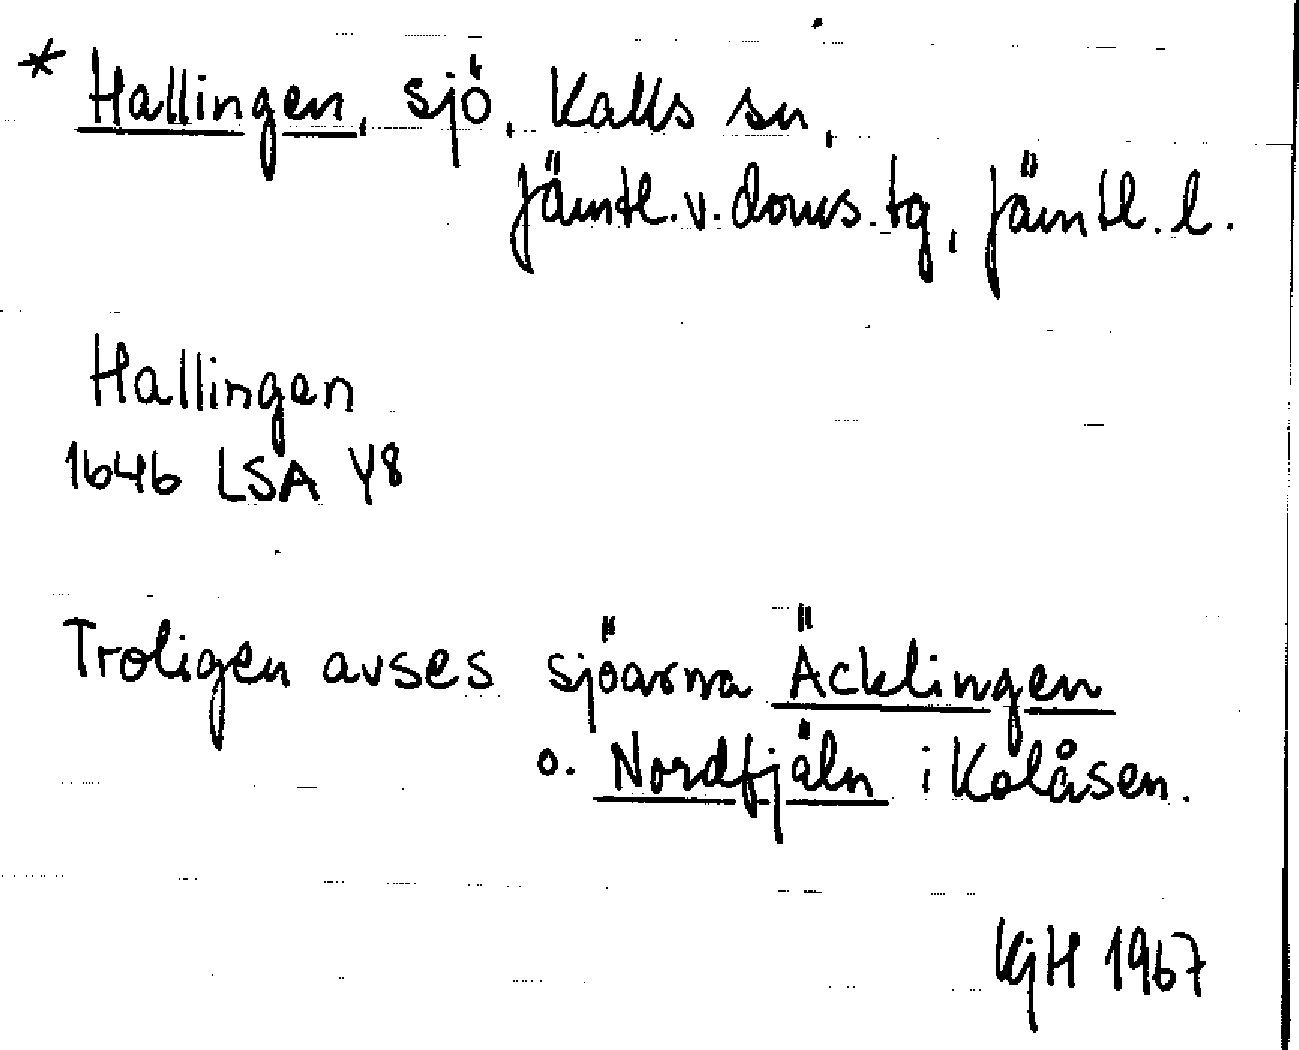 * Hallingen, sjö, Kalls sn,
Jämtl. v. doms. tg, Jämtl. l.
Hallingen
1646 LSA Y8
Troligen avses sjöarna Äcklingen
o. Nordfjäln i Kolåsen.
KgH 1967